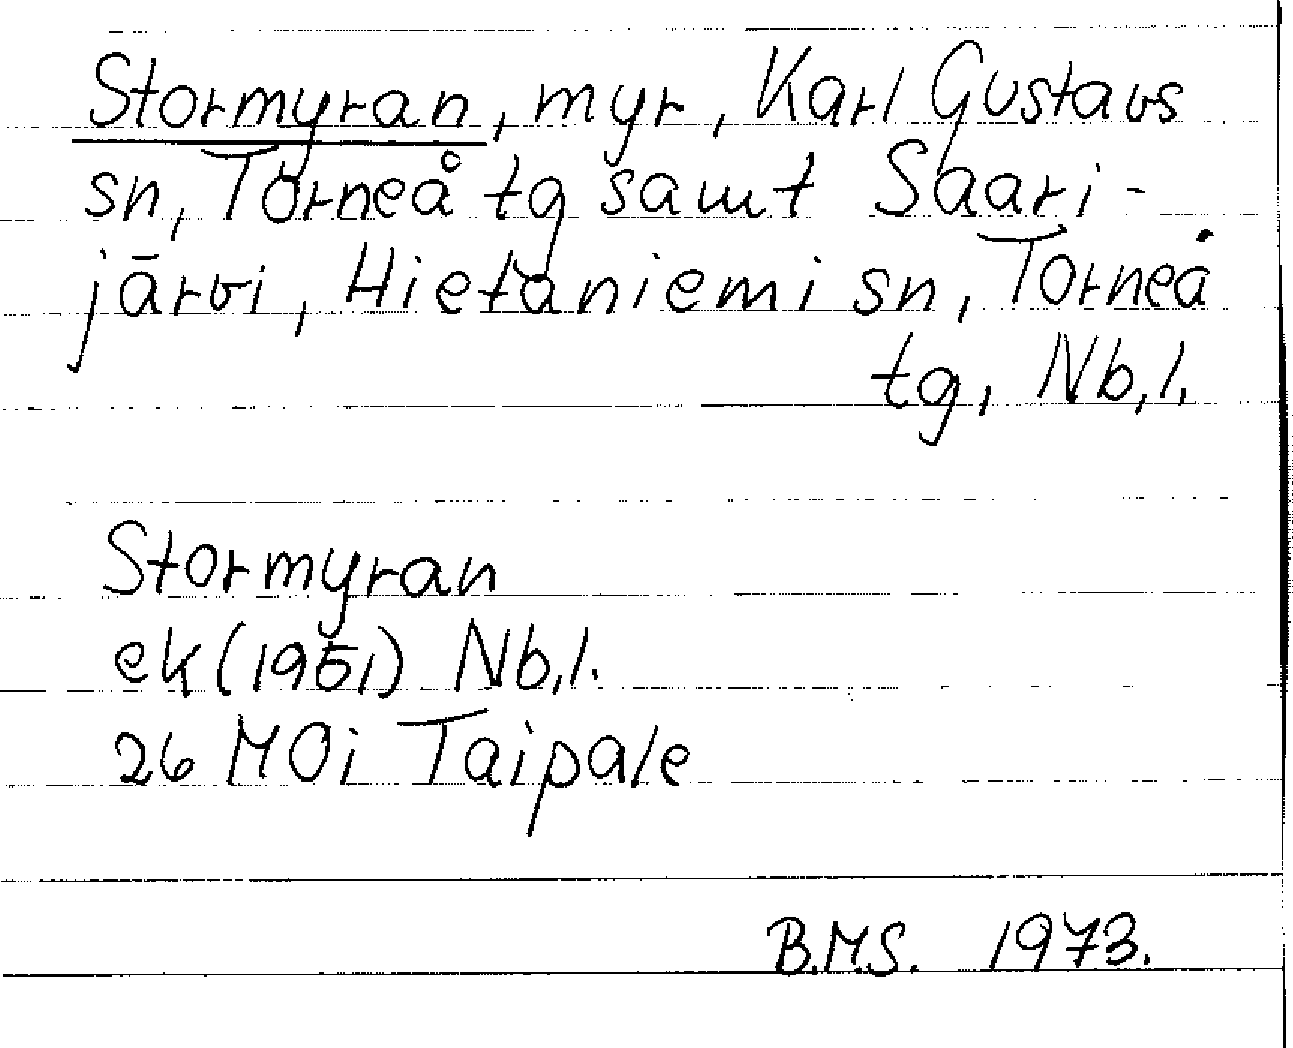 Stormyran, myr, Karl Gustavs
sn, Torneå tg samt Saari-
järvi, Hietaniemi sn, Torneå
tg, Nb,l.
Stormyran
ek (1951) Nb,l.
26 MOi Taipale
B.M.S. 1973.